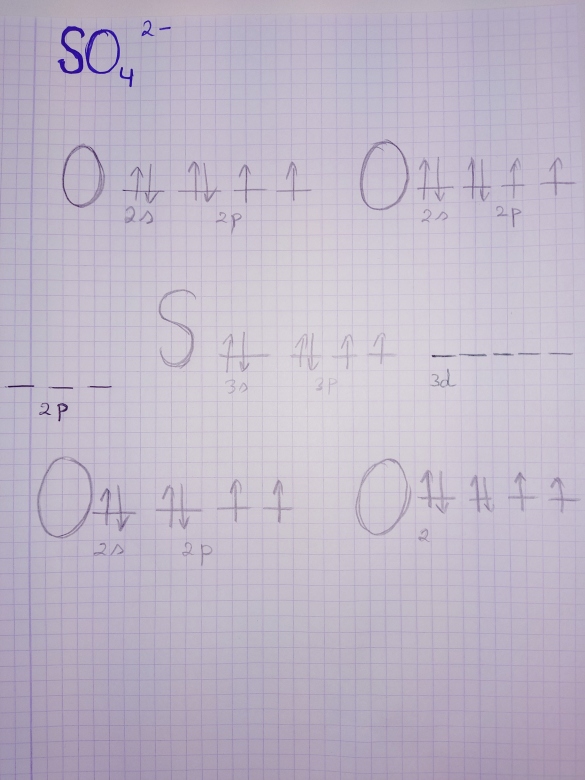 SO₄²⁻
O ↑↓ ↑↓ ↑ ↑ O ↑↓ ↑↓ ↑ ↑
2s 2p 2s 2p
S ↑↓ ↑↓ ↑ ↑ _ _ _ _ _
3s 3p 3d
_ _ _
2p
O ↑↓ ↑↓ ↑ ↑ O ↑↓ ↑↓ ↑ ↑
2s 2p 2